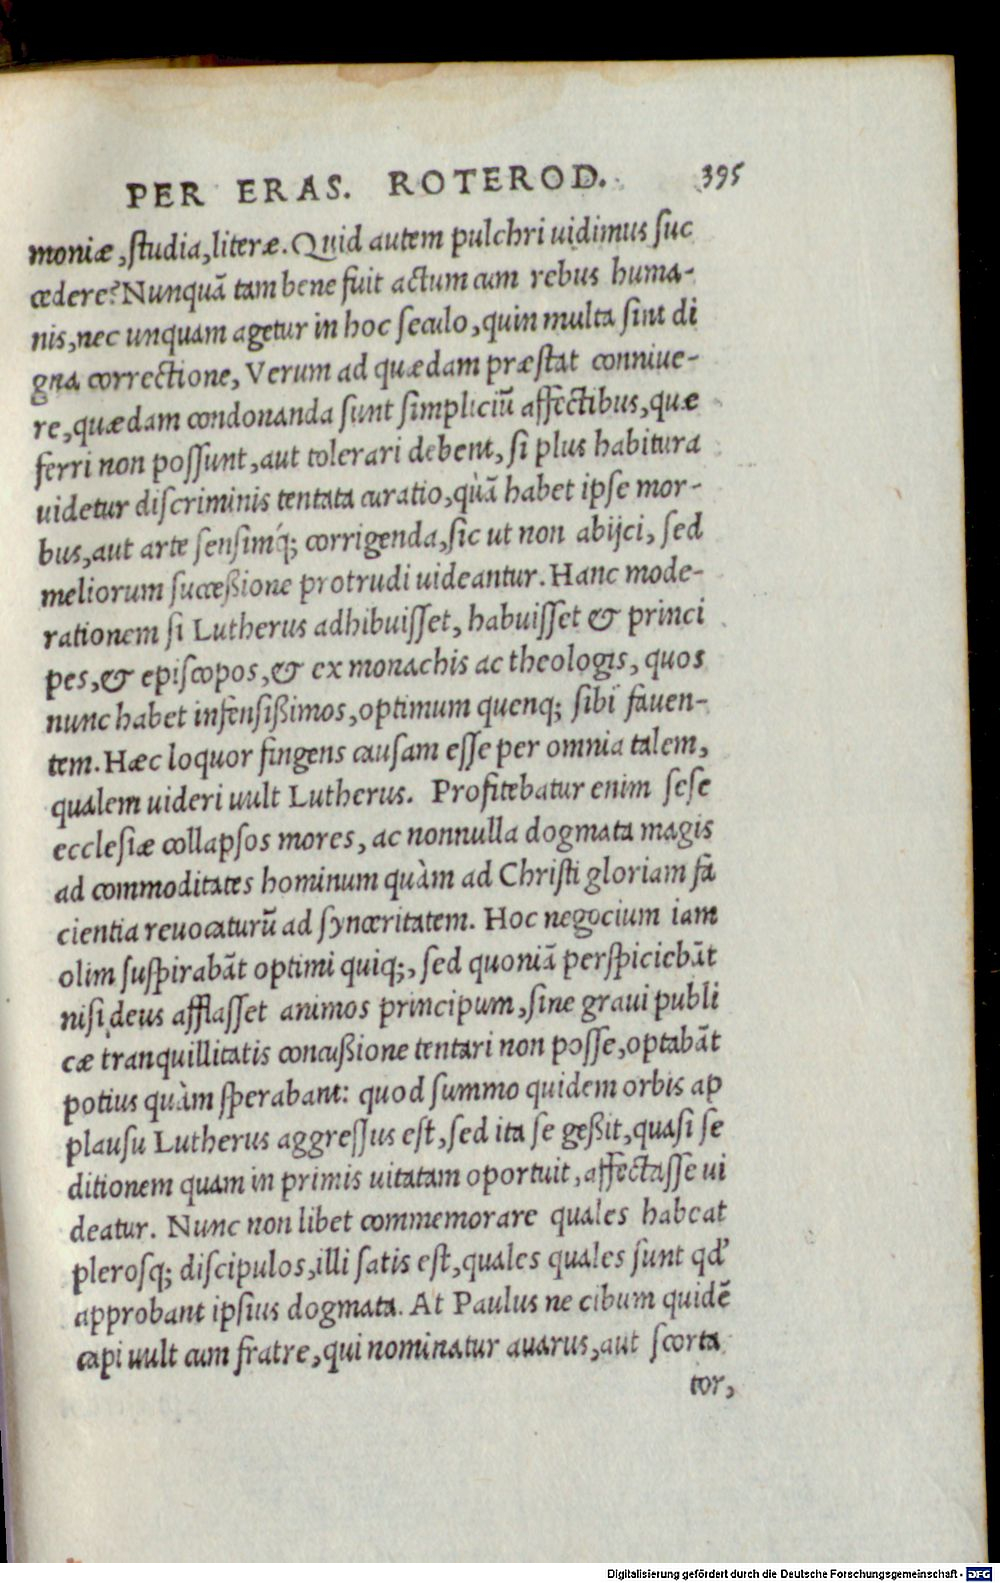 PER ERAS. ROTEROD. 395
moniæ, ſtudia, literæ. Quid autem pulchri uidimus ſuc
cedere? Nunquã tam bene fuit actum cum rebus huma-
nis, nec unquam agetur in hoc ſeculo, quin multa ſint di
gna correctione, Verum ad quædam præſtat conniue-
re, quædam condonanda ſunt ſimpliciũ affectibus, quæ
ferri non poſſunt, aut tolerari debent, ſi plus habitura
uidetur diſcriminis tentata curatio, quã habet ipſe mor-
bus, aut arte ſenſimq́; corrigenda, ſic ut non abijci, ſed
meliorum ſucceßione protrudi uideantur. Hanc mode-
rationem ſi Lutherus adhibuiſſet, habuiſſet & princi
pes, & epiſcopos, & ex monachis ac theologis, quos
nunc habet infenſißimos, optimum quenq; ſibi fauen-
tem. Hæc loquor fingens cauſam eſſe per omnia talem,
qualem uideri uult Lutherus. Profitebatur enim ſeſe
eccleſiæ collapſos mores, ac nonnulla dogmata magis
ad commoditates hominum quàm ad Chriſti gloriam fa
cientia reuocaturũ ad ſynceritatem. Hoc negocium iam
olim ſuſpirabãt optimi quiq;, ſed quoniã perſpiciebãt
niſi deus afflaſſet animos principum, ſine graui publi
cæ tranquillitatis concußione tentari non poſſe, optabãt
potius quàm ſperabant: quod ſummo quidem orbis ap
plauſu Lutherus aggreſſus eſt, ſed ita ſe geßit, quaſi ſe
ditionem quam in primis uitatam oportuit, affectaſſe ui
deatur. Nunc non libet commemorare quales habeat
pleroſq; diſcipulos, illi ſatis eſt, quales quales ſunt qd'
approbant ipſius dogmata. At Paulus ne cibum quidẽ
capi uult cum fratre, qui nominatur auarus, aut ſcorta
tor,
Digitalisierung gefördert durch die Deutsche Forschungsgemeinschaft - DFG